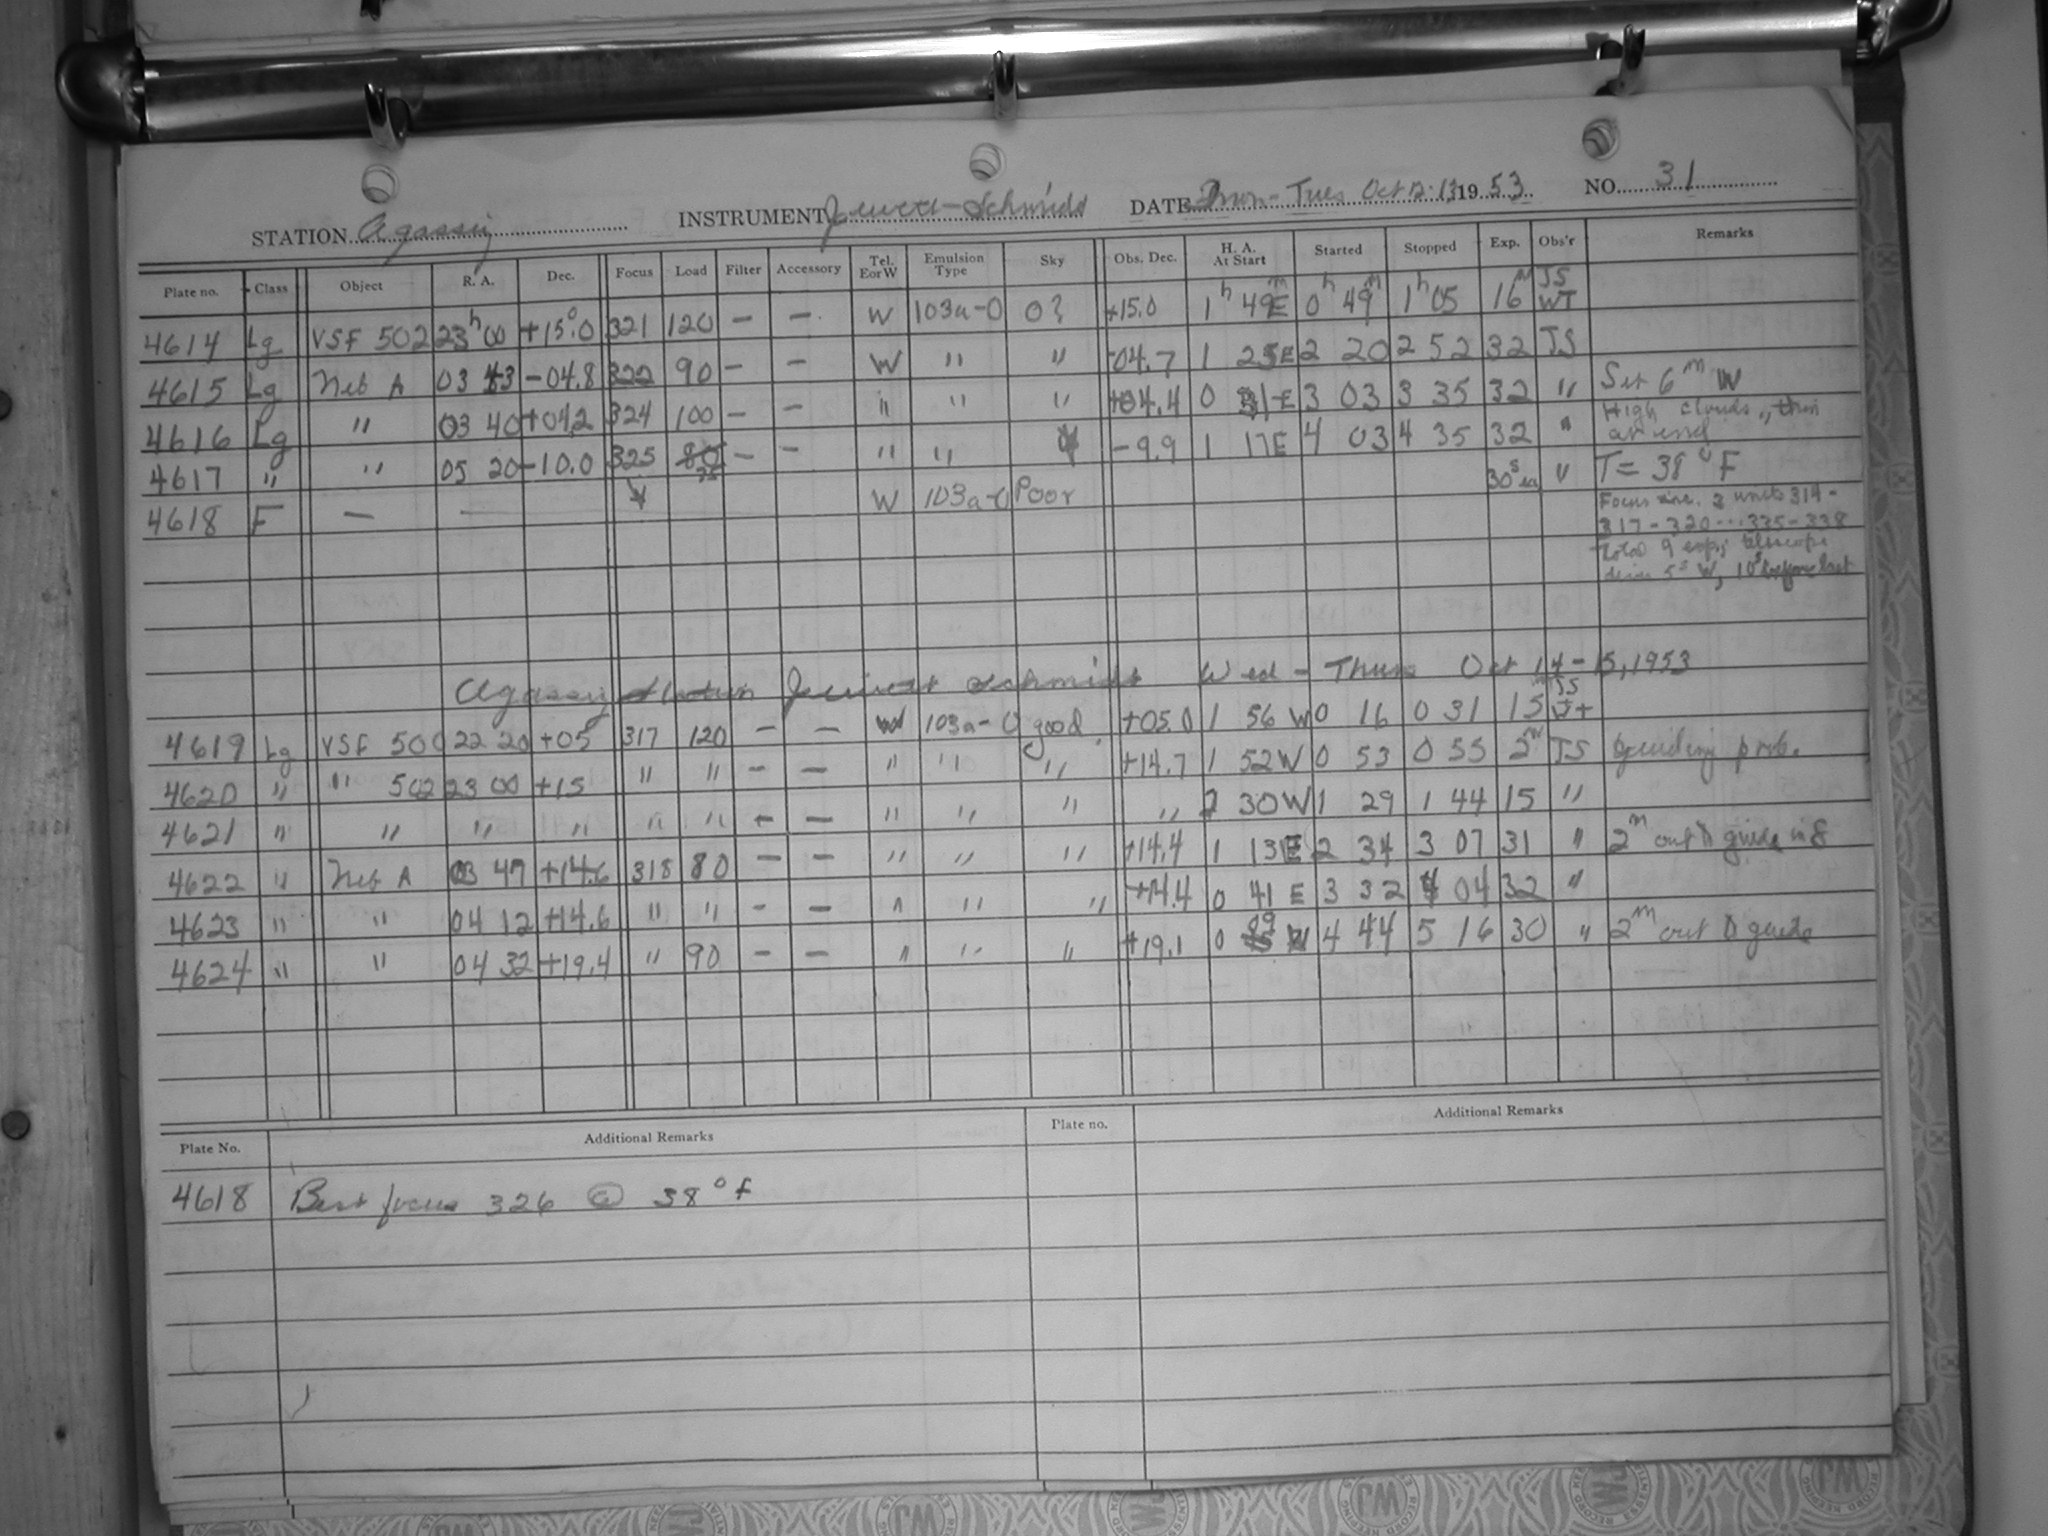 STATION Agassiz INSTRUMENT Jewett-Schmidt DATE Mon-Tues Oct 12-13, 1953 NO. 31
Plate no. Class Object R. A. Dec. Focus Load Filter Accessory Tel. E or W Emulsion Type Sky Obs. Dec. H. A. At Start Started Stopped Exp. Obs'r Remarks
4614 Lg VSF 502 23h 00 +15°.0 321 120 - - W 103a-O O? +15.0 1h 49m E 0h 49m 1h 05 16m JS WT
4615 Lg Neb A 03 43 -04.8 322 90 - - W " " -04.7 1 25 E 2 20 2 52 32 JS
4616 Lg " 03 40 +04.2 324 100 - - " " " +04.4 0 31 E 3 03 3 35 32 " Set 6m W
4617 " " 05 20 -10.0 325 80 75 - - " " -9.9 1 17 E 4 03 4 35 32 " High clouds, thin at end
4618 F - W 103a-O Poor 30s ea " T = 38° F
Focus inc. 3 units 314-
317-320...335-338
Total 9 exp; telescope
5s W, 10s before last
Agassiz Station Jewett Schmidt Wed - Thurs Oct 14-15, 1953
4619 Lg VSF 500 22 20 +05 317 120 - - W 103a-O good +05.0 1 56 W 0 16 0 31 15m JS
4620 " " 502 23 00 +15 " " - - " " " +14.7 1 52 W 0 53 0 55 2m JS guiding prob.
4621 " " " " " " - - " " " " 2 30 W 1 29 1 44 15 "
4622 " Neb A 03 47 +14.6 318 80 - - " " " +14.4 1 13 E 2 34 3 07 31 " 2m out guide
4623 " " 04 12 +14.6 " " - - " " " +14.4 0 41 E 3 32 4 04 32 "
4624 " " 04 32 +19.4 " 90 - - " " " +19.1 0 09 W 4 44 5 16 30 " 2m out guide
Plate No. Additional Remarks Plate no. Additional Remarks
4618 Best focus 326 @ 38° F